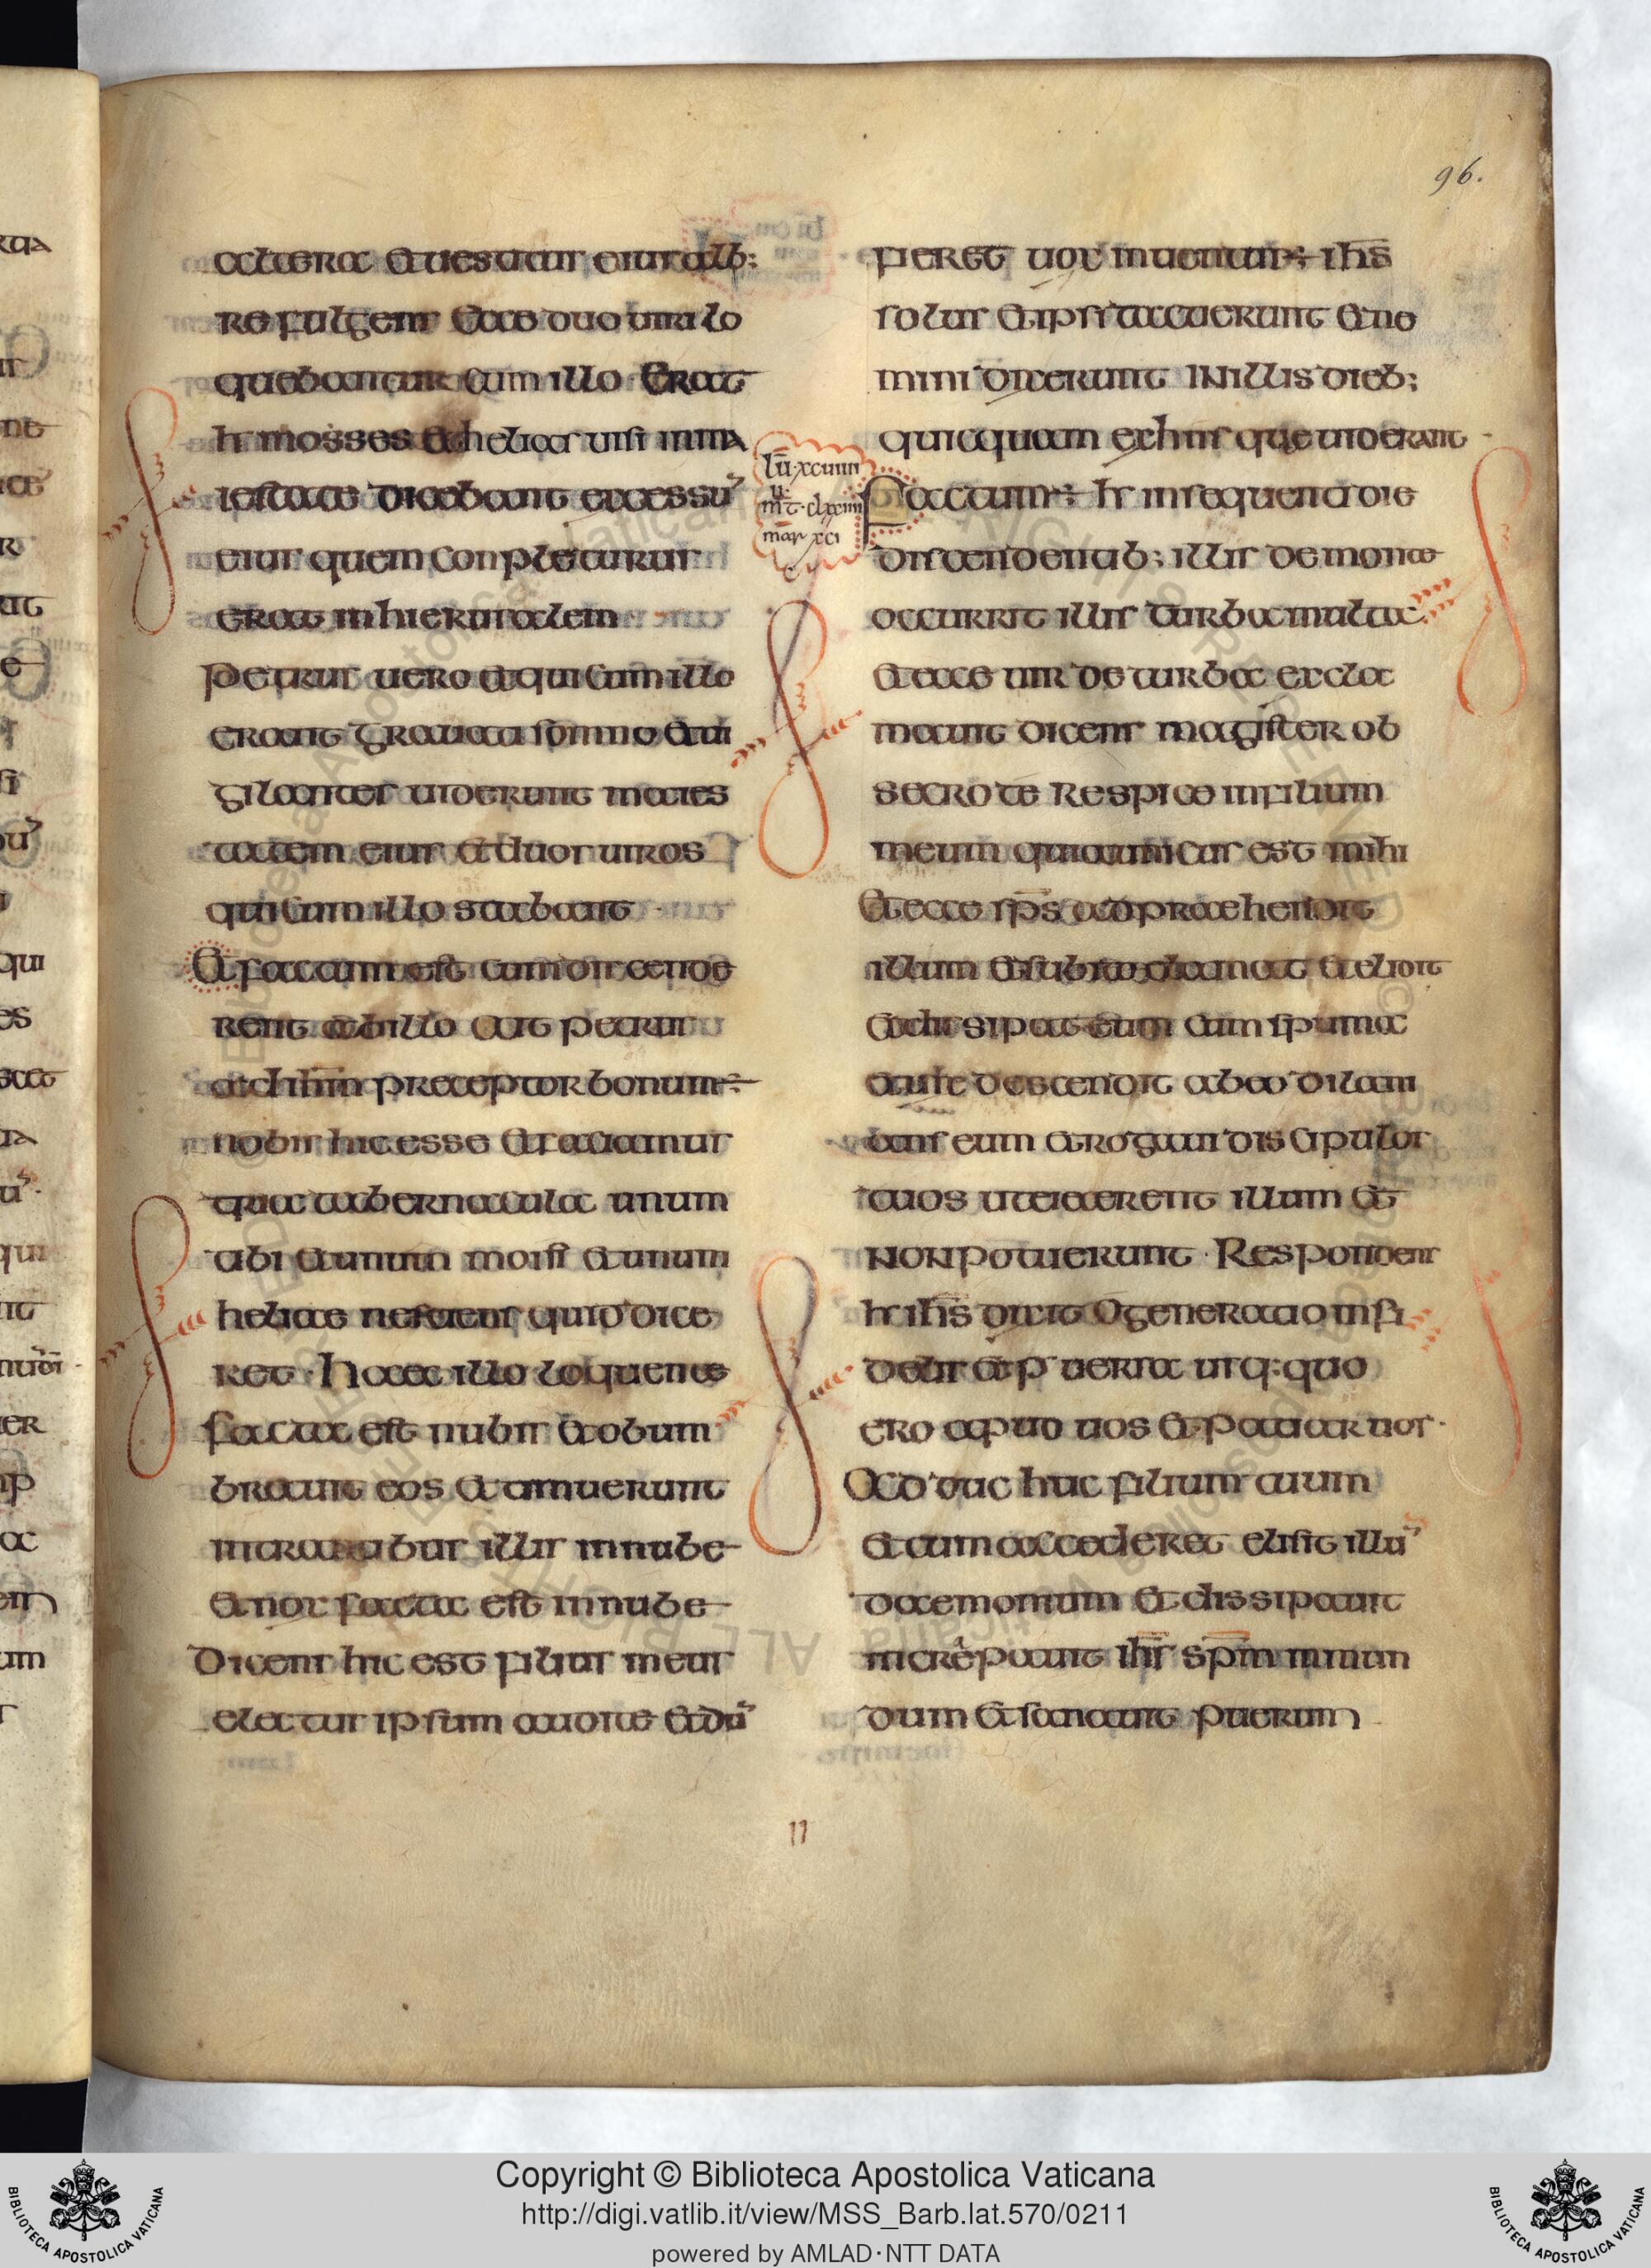 96.
altera & uestitus eius alb;
refulgens Ecce duo uiri lo
quebantur cum illo Erat
h mosses & helias uisi in ma
iestate dicebant excessū
eius quem conpleturus
erat in hierusalem
Petrus uero & qui cum illo
erant grauati somno & ui
gilantes uiderunt maies
tatem eius & duos uiros
qui cum illo stabant
& factum est cum discende
rent ab illo ait petrus
ad ihm preceptor bonum ÷
nobis hic esse & faciamus
tria tabernacula unum
tibi & unum moisi & unum
heliae nesciens quid dice
ret · Haec illo loquente
facta est nubis & obum
brauit eos & timuerunt
intrantibus illis in nube
& uox facta est in nube
Dicens hic est filius meus
electus ipsum audite & dū
fieret uox inuentus ÷ ihs
solus & ipsi tacuerunt & ne
mini dixerunt IN illis dieb;
quicquam ex his que uiderant
lū · xcuiiii
mt · clxxiiii
mar xci
Factum ÷ h in sequenti die
discendentib; illis de monte
occurrit illis turba multa
& ecce uir de turba excla
mauit dicens magister ob
secro te Respice in filium
meum quia unicus est mihi
& ecce sps adpraehendit
illum & subito clamat & elidit
& dissipat eum cum spuma
& uix descendit ab eo dilani
ans eum & rogaui discipulos
tuos ut eiecerent illum &
non potuerunt · Respondens
h ihs dixit O generatio infi
delis & p uersa usq: quo
ero apud uos & patiar uos ·
Adduc huc filium tuum
& cum accederet elisit illū
daemonium & dissipauit
increpauit ihs spm inmun
dum & sanauit puerum
Copyright © Biblioteca Apostolica Vaticana
http://digi.vatlib.it/view/MSS_Barb.lat.570/0211
powered by AMLAD·NTT DATA
BIBLIOTECA APOSTOLICA VATICANA
BIBLIOTECA APOSTOLICA VATICANA